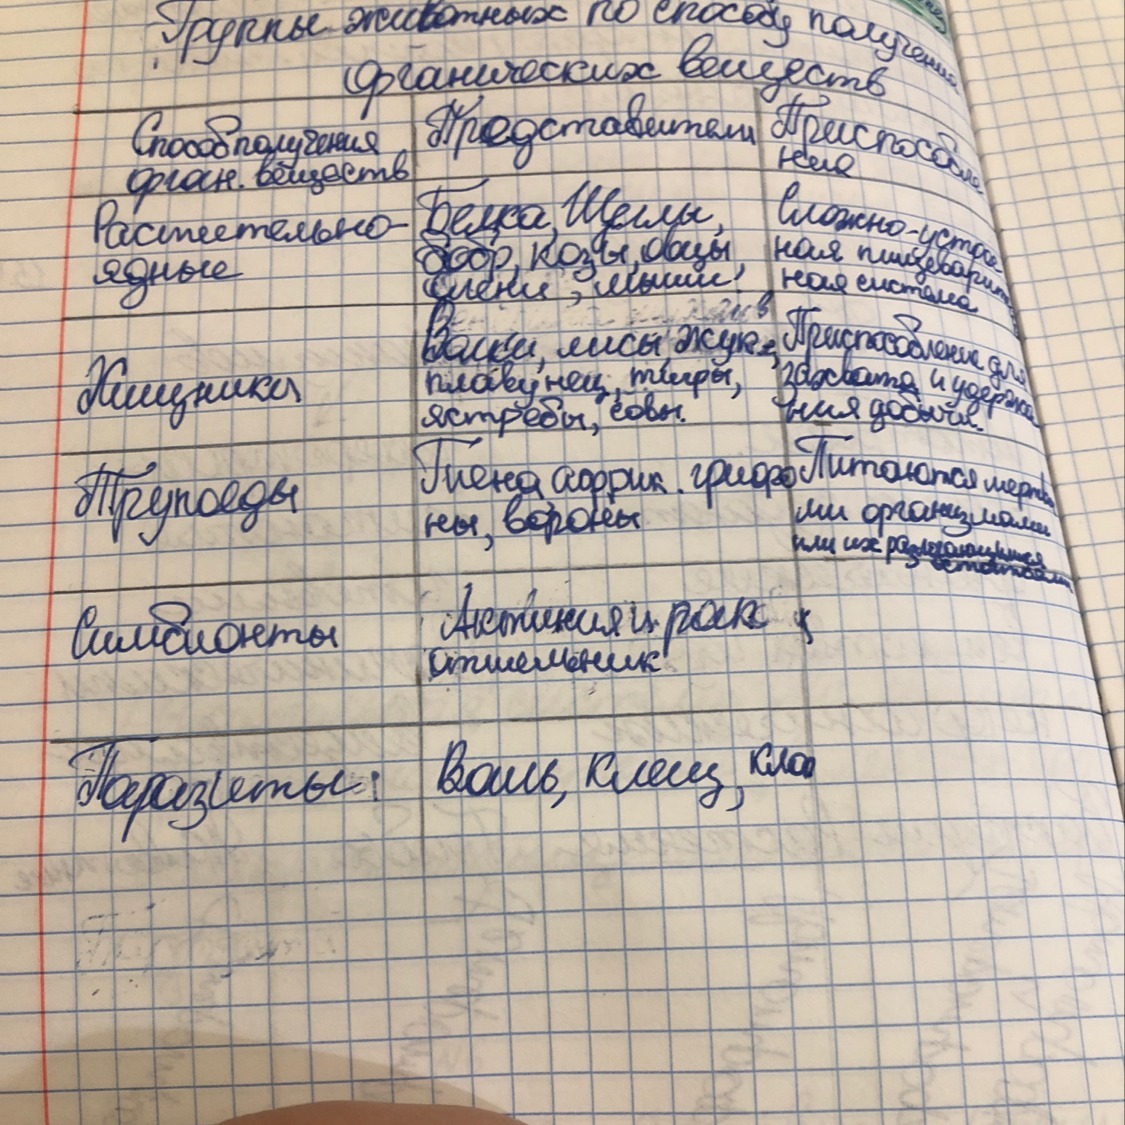 Группы животных по способу получения
органических веществ
Способ получения
орган. веществ
Представители
Приспособле
ние
Растительно-
ядные
Белка, Щеглы,
бобр, козы, овцы,
олени, мыши.
Сложно-устрое
ная пищеварит
ная система
Хищники
Волки, лисы, жук-
плавунец, тигры,
ястребы, совы.
Приспособление для
захвата и удержа
ния добычи.
Трупоеды
Гиена африк. грифо
ны, вороны
Питаются мертвы
ми организмами
или их разлагающимися
остатками
Симбионты
Актиния и рак
отшельник
Паразиты:
Вошь, клещ, клоп